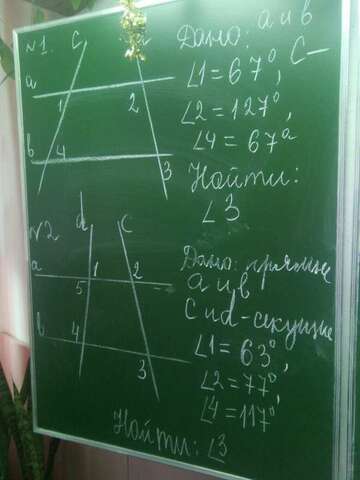 №1.
c
a
1
2
b
4
3
Дано: a и b
c –
∠1 = 67°,
∠2 = 127°,
∠4 = 67°
Найти:
∠3
№2
d
c
a
1
2
5
b
4
3
Дано: прямые
a и b
c и d - секущие
∠1 = 63°,
∠2 = 77°,
∠4 = 117°
Найти: ∠3